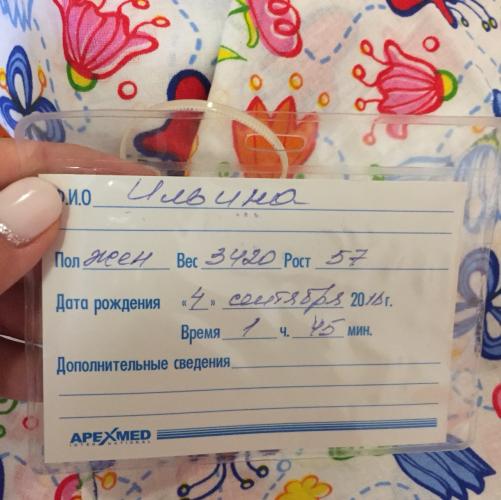 Ф.И.О Ильина
Пол жен Вес 3420 Рост 57
Дата рождения «4» сентября 2016 г.
Время 1 ч. 45 мин.
Дополнительные сведения
APEXMED
INTERNATIONAL